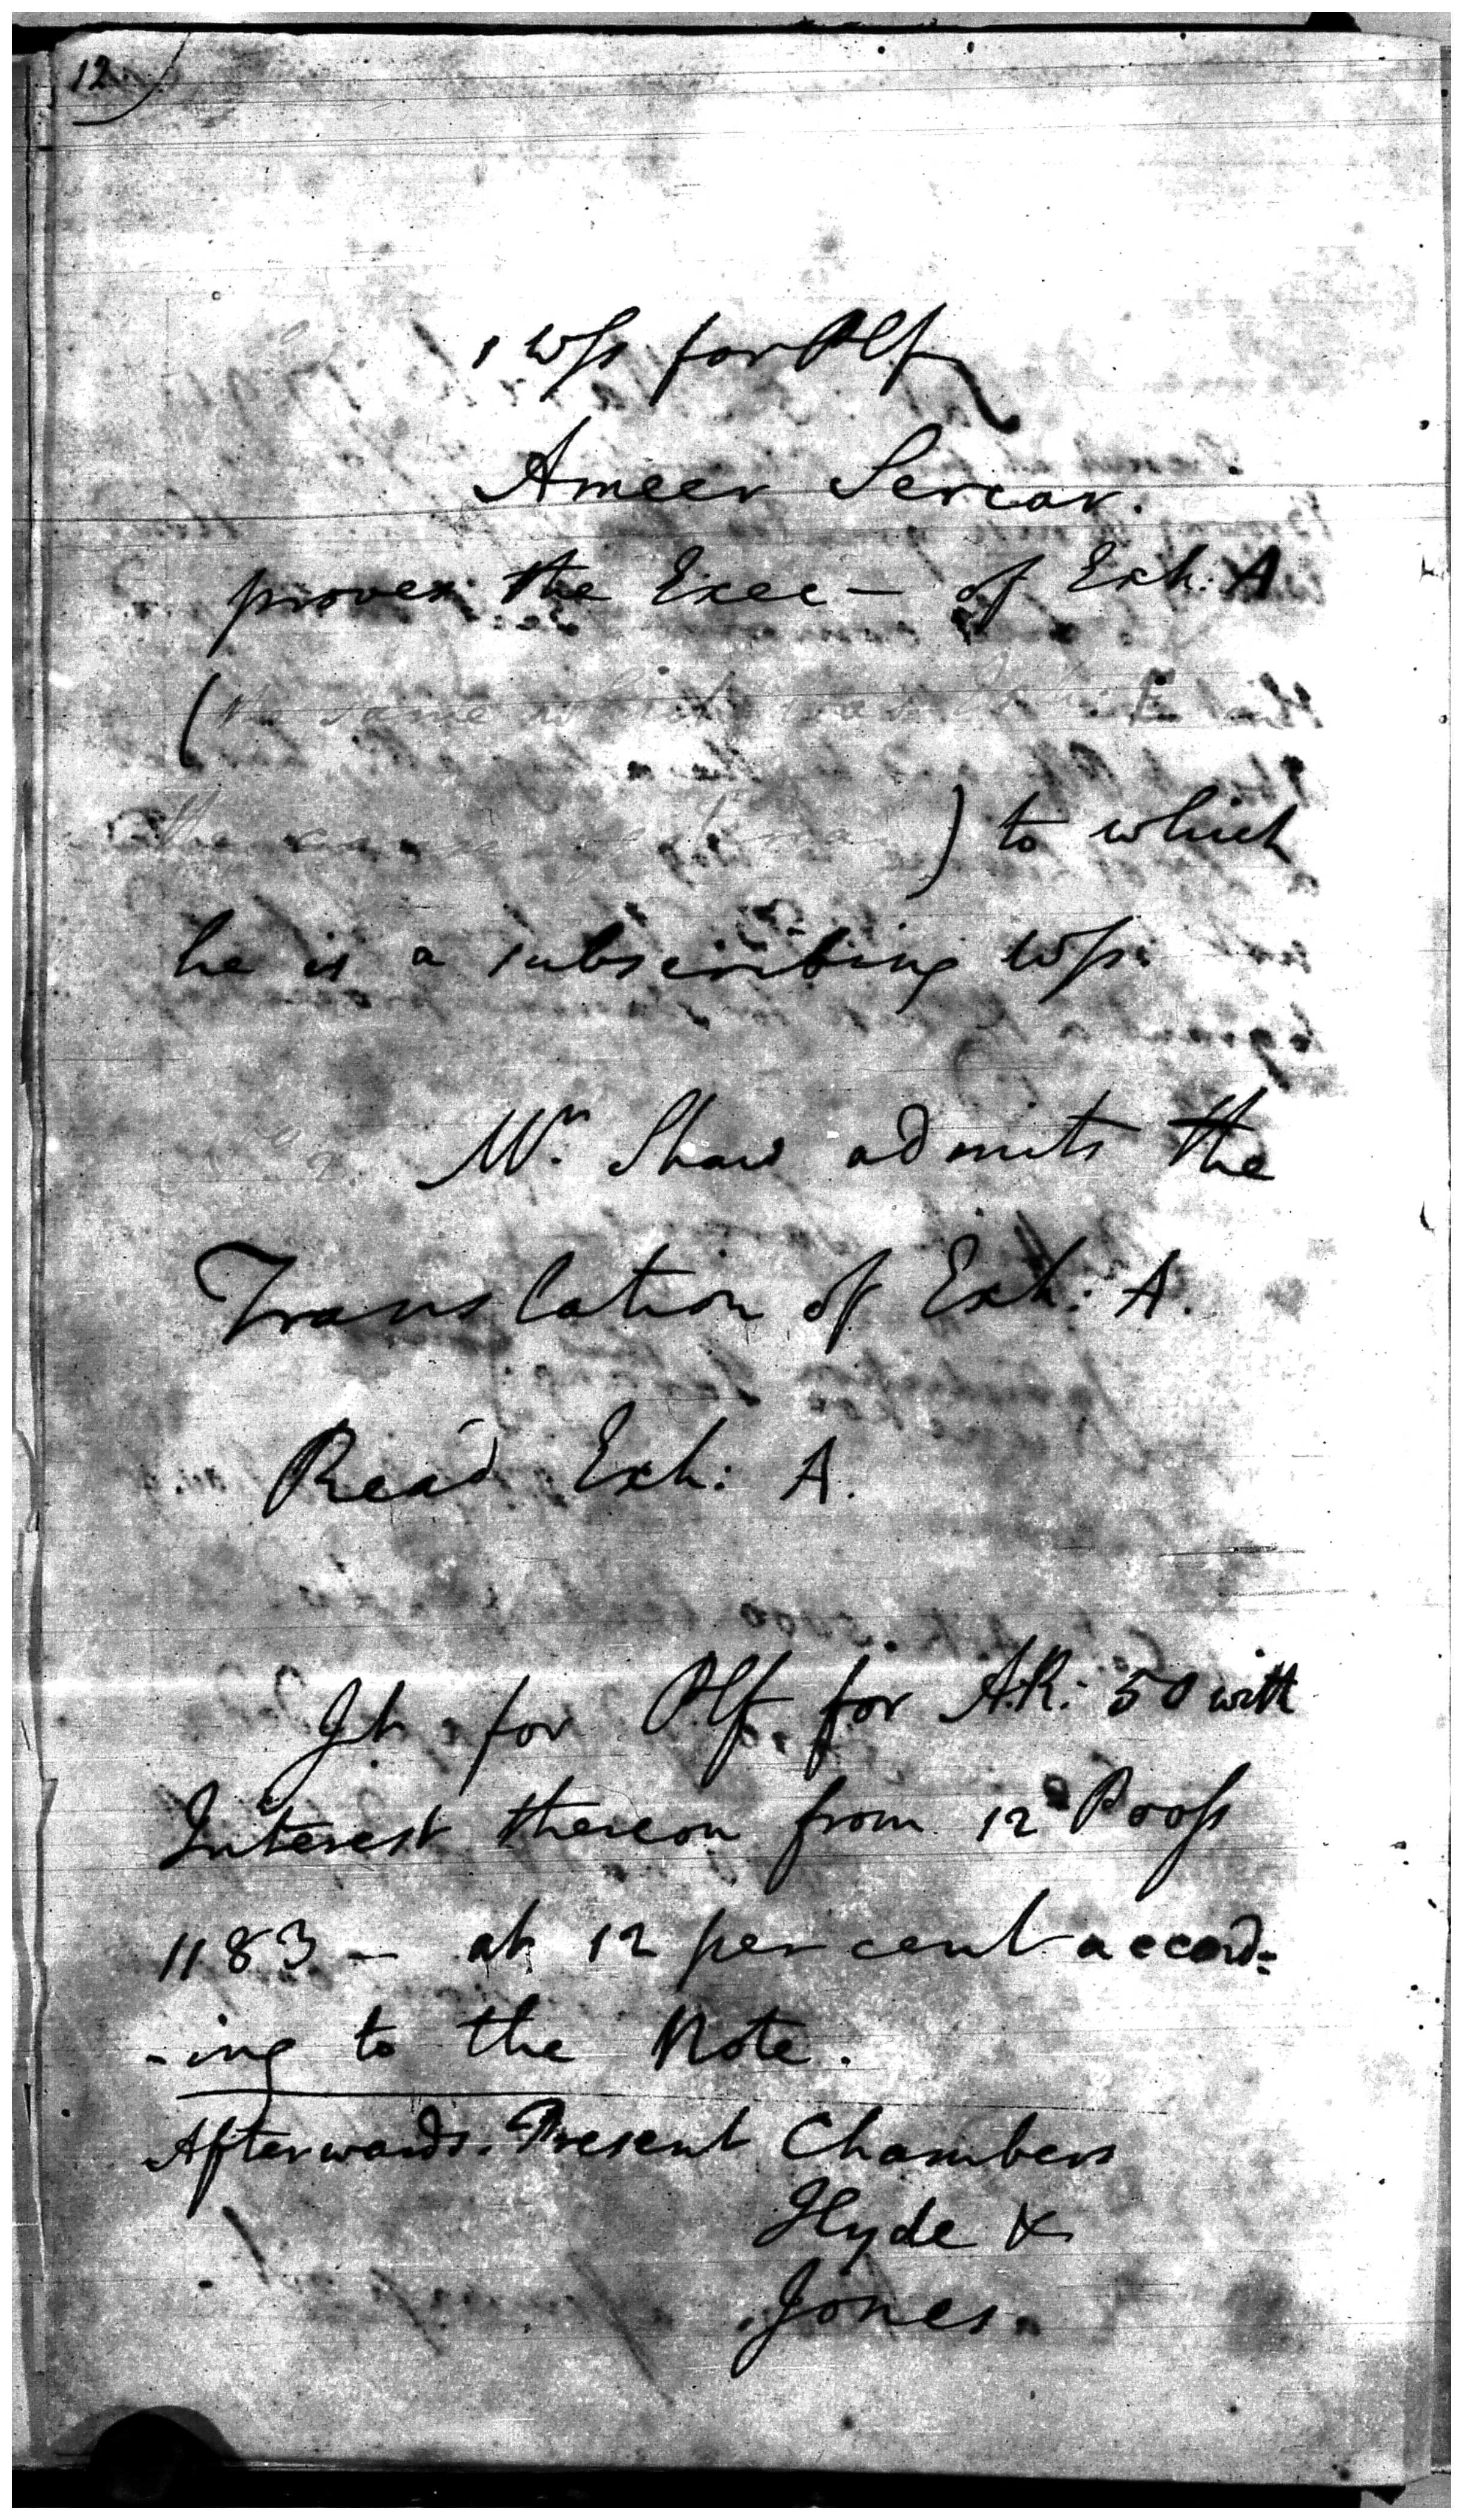 12
1 Wss for Plf
Ameer Sercar.
proves the Exec – of Exh. A
(the same which was Exh:
the ) to which
he is a subscribing Wss.
Mr. Shaw admits the
Translation of Exh: A.
Read Exh: A.
Jt for Plf for A.R: 50 with
Interest thereon from 12 Pooss
1183 – at 12 per cent accord=
-ing to the Note.
Afterwards. Present Chambers
Hyde &
Jones.